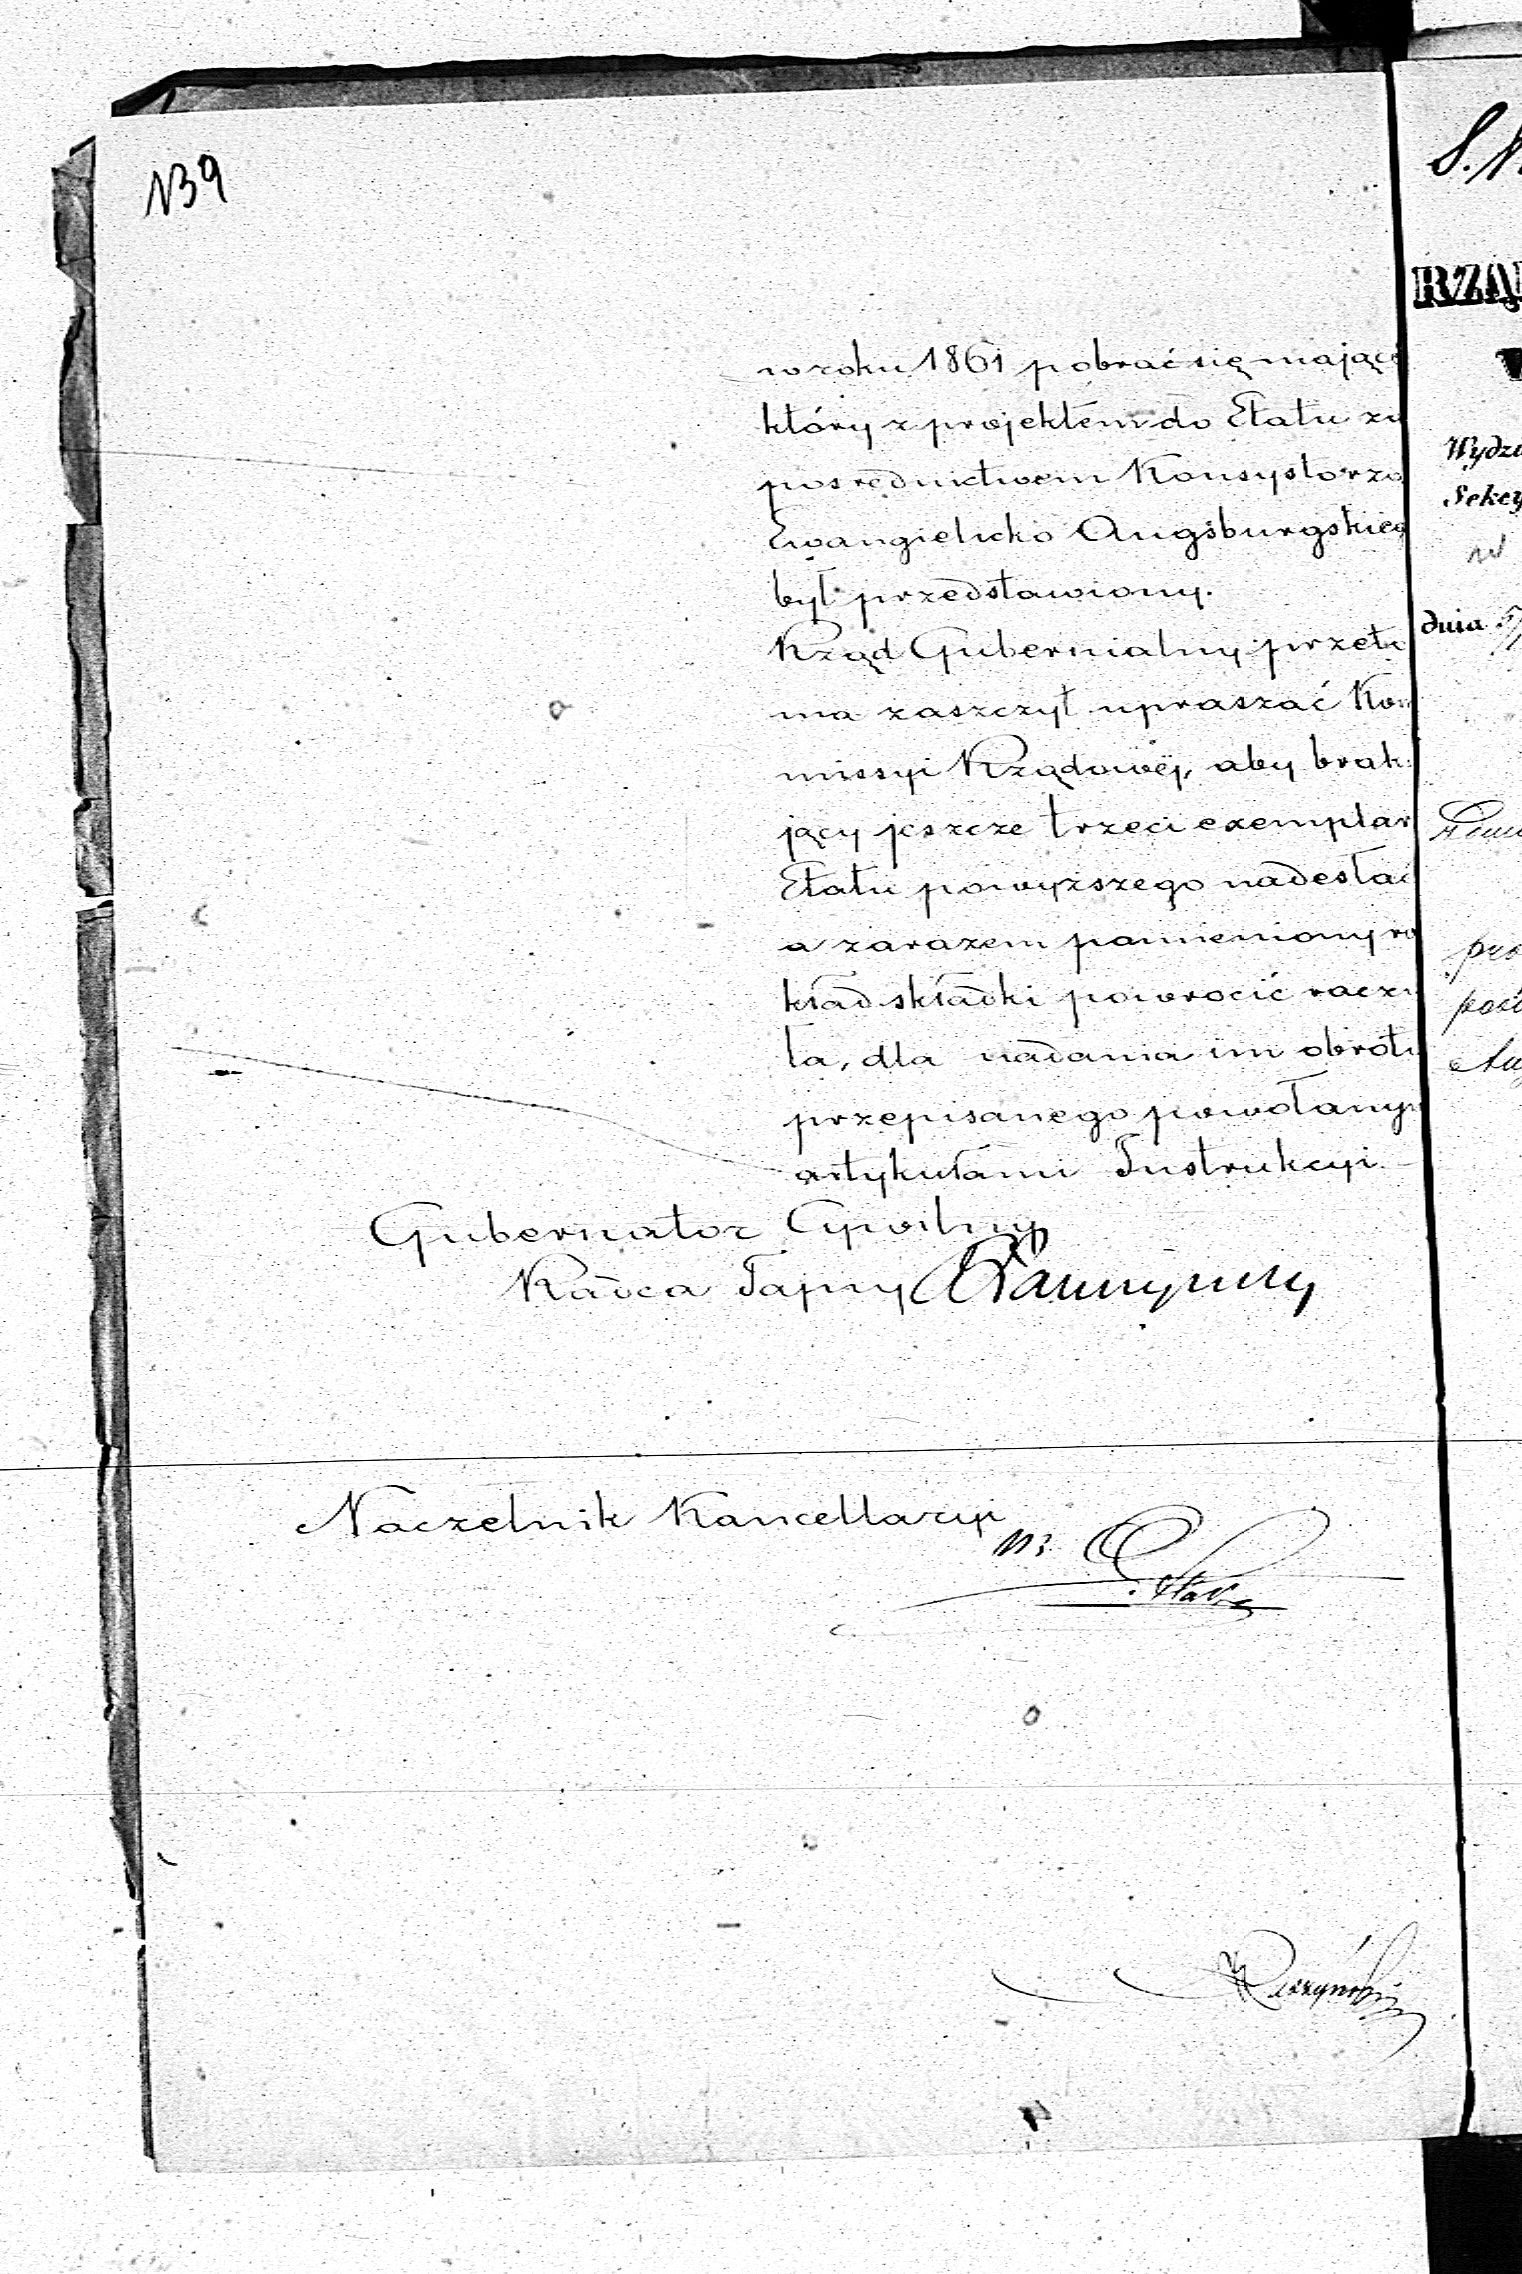 139
w roku 1861 pobrać się mające
który z projektem do Etatu za
pośrednictwem Konsystorza
Ewangielicko Augsburgskieg
był przedstawiony.
Rząd Gubernialny przeto
ma zaszczyt upraszać Kom
missyi Rządowéj, aby braku
jący jeszcze trzeci exemplarz
Etatu powyższego nadesłać
a zarazem pomieniony roz
kład składki powrócić raczy
ła, dla nadania im obrotu
przepisanego powołanym
artykułami Instrukcyi.
Gubernator Cywilny
Radca Tajny
Naczelnik Kancellaryi
RZĄD
Wydzi
Sekcy
w
dnia
pro